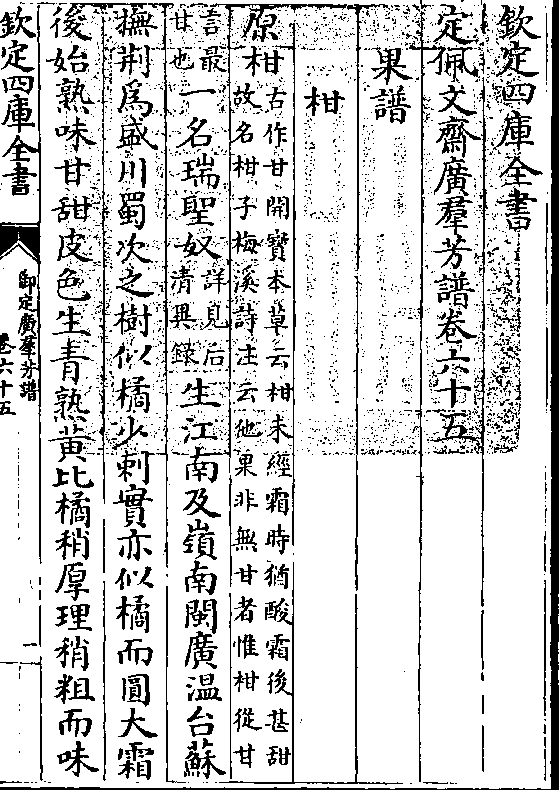 欽定四庫全書
定佩文齋廣羣芳譜卷六十五
果譜
柑
原柑古作甘開寶本草云柑未經霜時猶酸霜後甚甜
故名柑子梅溪詩注云他果非無甘者惟柑從甘
言最
甘也一名瑞聖奴詳見后
清異錄生江南及嶺南閩廣溫台蘇
撫荆爲盛川蜀次之樹似橘少刺實亦似橘而圓大霜
後始熟味甘甜皮色生青熟黃比橘稍厚理稍粗而味
欽定四庫全書
御定廣羣芳譜
卷六十五
一